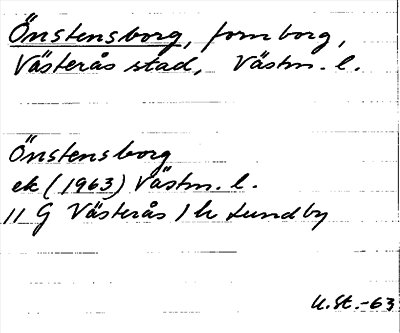 Önstensborg, fornborg,
Västerås stad, Västm. l.
Önstensborg
ek (1963) Västm. l.
11 G Västerås 1 h Lundby
U.St.-63